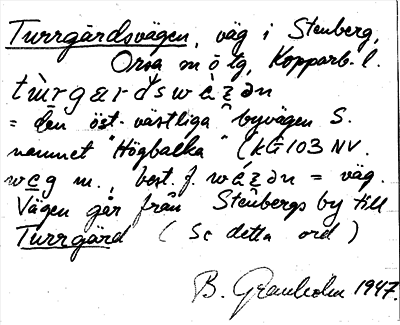 Turrgårdsvägen, väg i Stenberg,
Orsa m o tg, Kopparb. l.
= den västliga byvägen S.
namnet "Högbalka" (kG 103 NV.
wæg m., best. f. = väg.
Vägen går från Stenbergs by till
Turrgård (Se detta ord)
B. Granholm 1947.